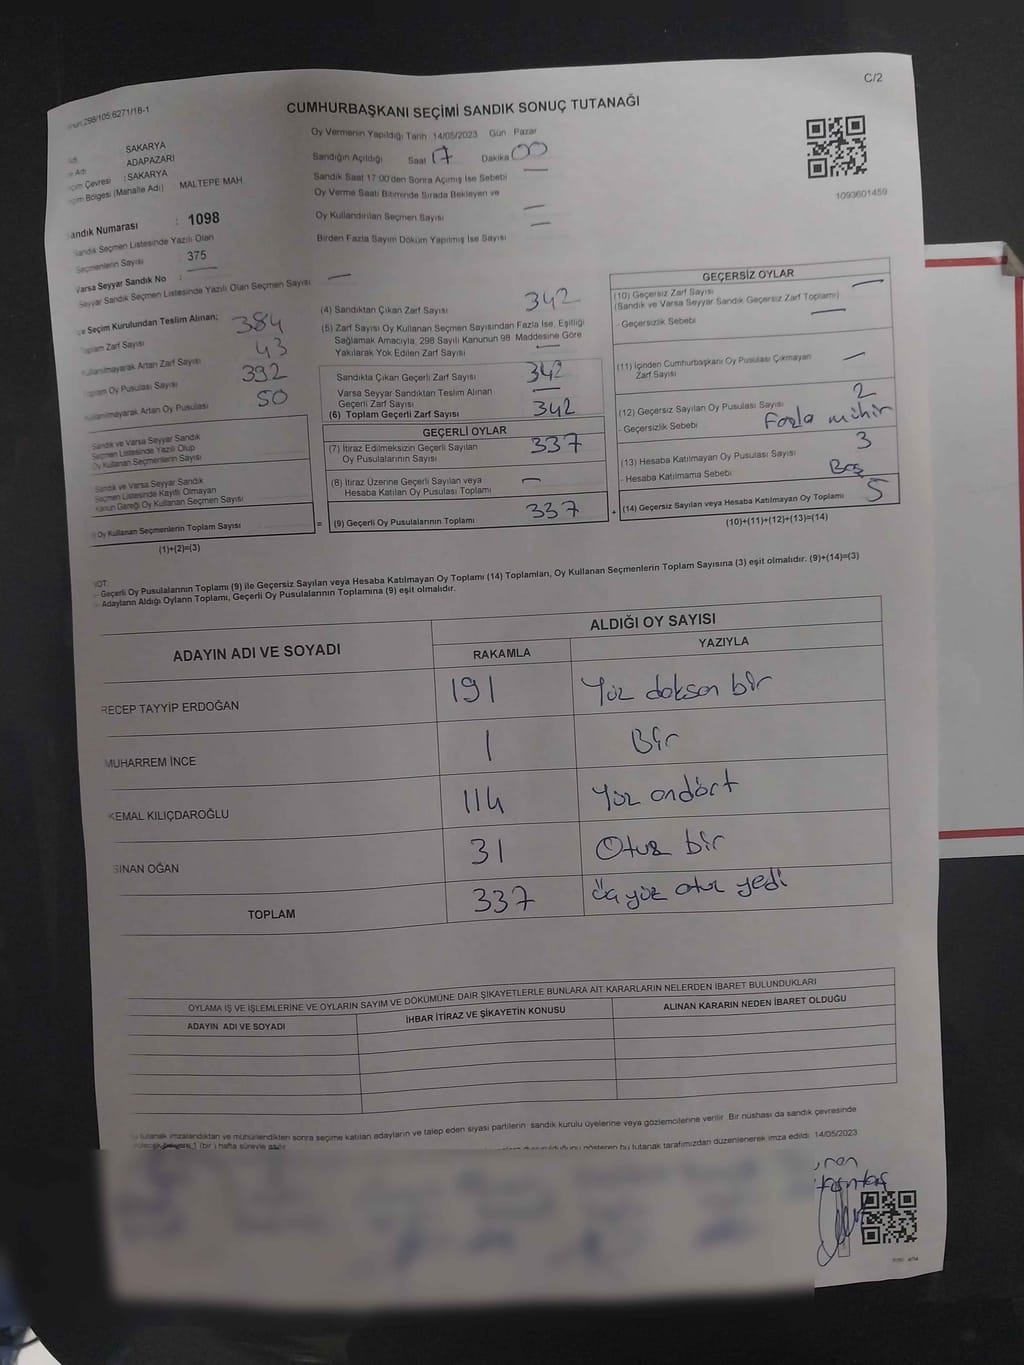 C/2
298/105;6271/18-1
CUMHURBAŞKANI SEÇİMİ SANDIK SONUÇ TUTANAĞI
Oy Vermenin Yapıldığı Tarih 14/05/2023 Gün Pazar
Sandığın Açıldığı Saat 17 Dakika 00
Sandık Saat 17:00'den Sonra Açımış İse Sebebi —
Oy Verme Saati Bitiminde Sırada Bekleyen ve
Oy Kullandırılan Seçmen Sayısı —
Birden Fazla Sayım Döküm Yapılmış İse Sayısı —
1093601459
: SAKARYA
Adı ADAPAZARI
Çevresi : SAKARYA
Bölgesi (Mahalle Adı) MALTEPE MAH
andık Numarası : 1098
Sandık Seçmen Listesinde Yazılı Olan
Seçmenlerin Sayısı 375
Varsa Seyyar Sandık No :
Seyyar Sandık Seçmen Listesinde Yazılı Olan Seçmen Sayısı —
Seçim Kurulundan Teslim Alınan;
Toplam Zarf Sayısı 384
Kullanılmayarak Artan Zarf Sayısı 43
Toplam Oy Pusulası Sayısı 392
Kullanılmayarak Artan Oy Pusulası 50
Sandık ve Varsa Seyyar Sandık
Seçmen Listesinde Yazılı Olup
Oy Kullanan Seçmenlerin Sayısı
Sandık ve Varsa Seyyar Sandık
Seçmen Listesinde Kayıtlı Olmayan
Kanun Gereği Oy Kullanan Seçmen Sayısı
Oy Kullanan Seçmenlerin Toplam Sayısı
(1)+(2)=(3)
(4) Sandıktan Çıkan Zarf Sayısı 342
(5) Zarf Sayısı Oy Kullanan Seçmen Sayısından Fazla İse, Eşitliği
Sağlamak Amacıyla, 298 Sayılı Kanunun 98. Maddesine Göre
Yakılarak Yok Edilen Zarf Sayısı —
Sandıkta Çıkan Geçerli Zarf Sayısı 342
Varsa Seyyar Sandıktan Teslim Alınan
Geçerli Zarf Sayısı —
(6) Toplam Geçerli Zarf Sayısı 342
GEÇERLİ OYLAR
(7) İtiraz Edilmeksizin Geçerli Sayılan
Oy Pusulalarının Sayısı 337
(8) İtiraz Üzerine Geçerli Sayılan veya
Hesaba Katılan Oy Pusulası Toplamı —
= (9) Geçerli Oy Pusulalarının Toplamı 337 +
GEÇERSİZ OYLAR
(10) Geçersiz Zarf Sayısı —
(Sandık ve Varsa Seyyar Sandık Geçersiz Zarf Toplamı)
- Geçersizlik Sebebi —
(11) İçinden Cumhurbaşkanı Oy Pusulası Çıkmayan
Zarf Sayısı —
(12) Geçersiz Sayılan Oy Pusulası Sayısı 2
- Geçersizlik Sebebi Fazla mühür
(13) Hesaba Katılmayan Oy Pusulası Sayısı 3
- Hesaba Katılmama Sebebi Boş
(14) Geçersiz Sayılan veya Hesaba Katılmayan Oy Toplamı 5
(10)+(11)+(12)+(13)=(14)
NOT:
- Geçerli Oy Pusulalarının Toplamı (9) ile Geçersiz Sayılan veya Hesaba Katılmayan Oy Toplamı (14) Toplamları, Oy Kullanan Seçmenlerin Toplam Sayısına (3) eşit olmalıdır. (9)+(14)=(3)
- Adayların Aldığı Oyların Toplamı, Geçerli Oy Pusulalarının Toplamına (9) eşit olmalıdır.
ADAYIN ADI VE SOYADI ALDIĞI OY SAYISI
RAKAMLA YAZIYLA
RECEP TAYYİP ERDOĞAN 191 Yüz doksan bir
MUHARREM İNCE 1 Bir
KEMAL KILIÇDAROĞLU 114 Yüz ondört
SİNAN OĞAN 31 Otuz bir
TOPLAM 337 Üçyüz otuz yedi
OYLAMA İŞ VE İŞLEMLERİNE VE OYLARIN SAYIM VE DÖKÜMÜNE DAİR ŞİKAYETLERLE BUNLARA AİT KARARLARIN NELERDEN İBARET BULUNDUKLARI
ADAYIN ADI VE SOYADI İHBAR İTİRAZ VE ŞİKAYETİN KONUSU ALINAN KARARIN NEDEN İBARET OLDUĞU
tutanak imzalandıktan ve mühürlendikten sonra seçime katılan adayların ve talep eden siyasi partilerin sandık kurulu üyelerine veya gözlemcilerine verilir. Bir nüshası da sandık çevresinde
1 (bir) hafta süreyle asılır
gösteren bu tutanak tarafımızdan düzenlenerek imza edildi. 14/05/2023